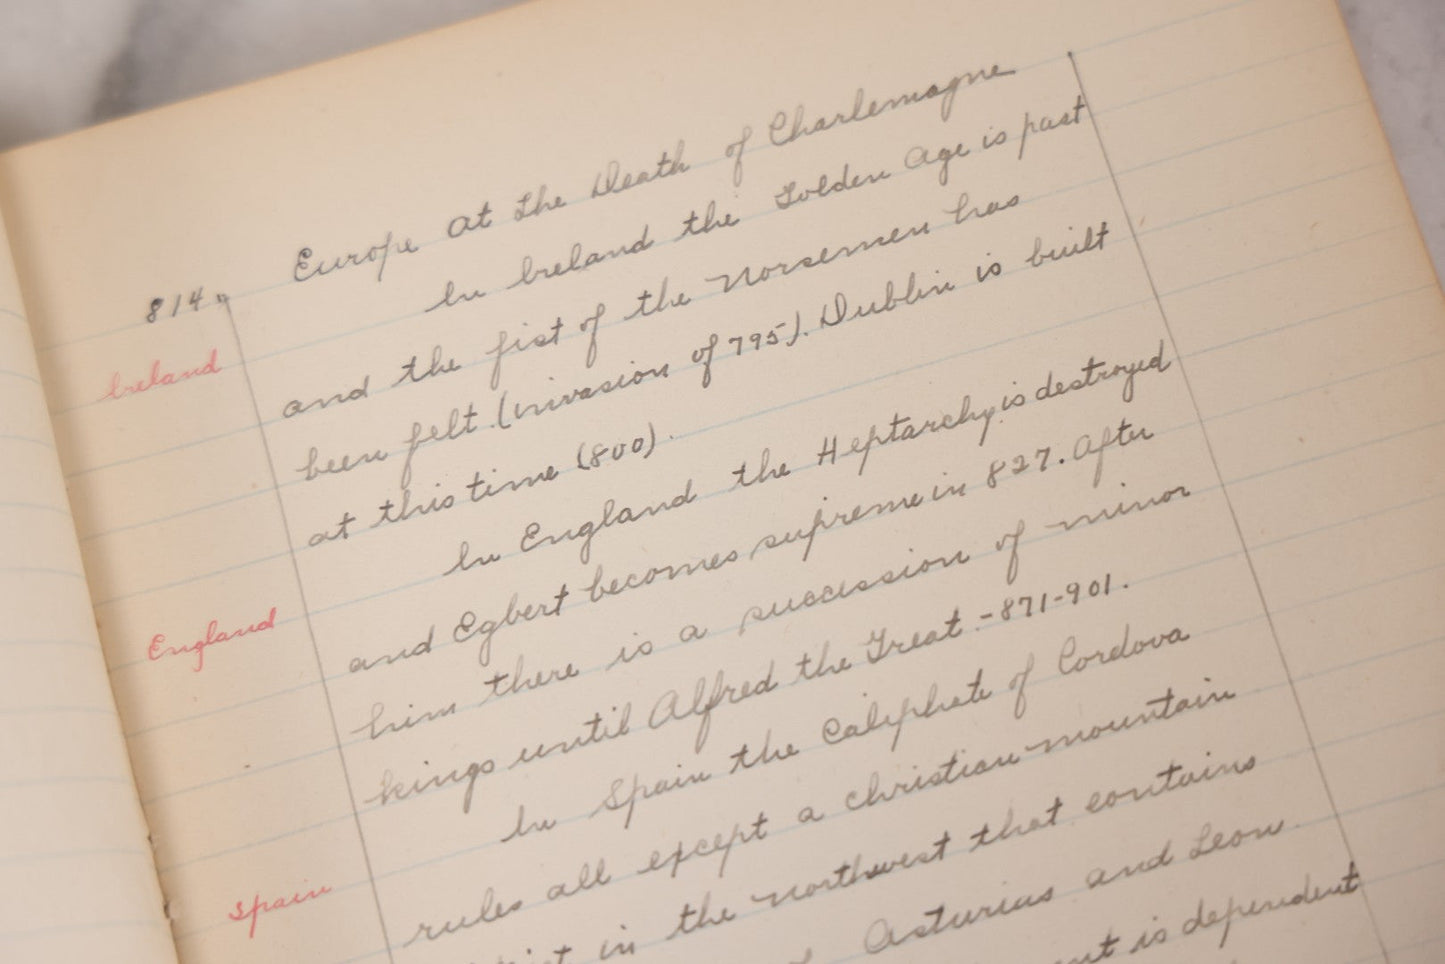 Europe at the Death of Charlemagne
814.
In Ireland the Golden Age is past
Ireland
and the fist of the Norsemen has
been felt. (invasion of 795). Dublin is built
at this time (800).
In England the Heptarchy is destroyed
England
and Egbert becomes supreme in 827. After
him there is a succession of minor
kings until Alfred the Great. - 871-901.
In Spain the Caliphate of Cordova
Spain
rules all except a christian mountain
in the northwest that contains
Asturias and Leon
is dependent